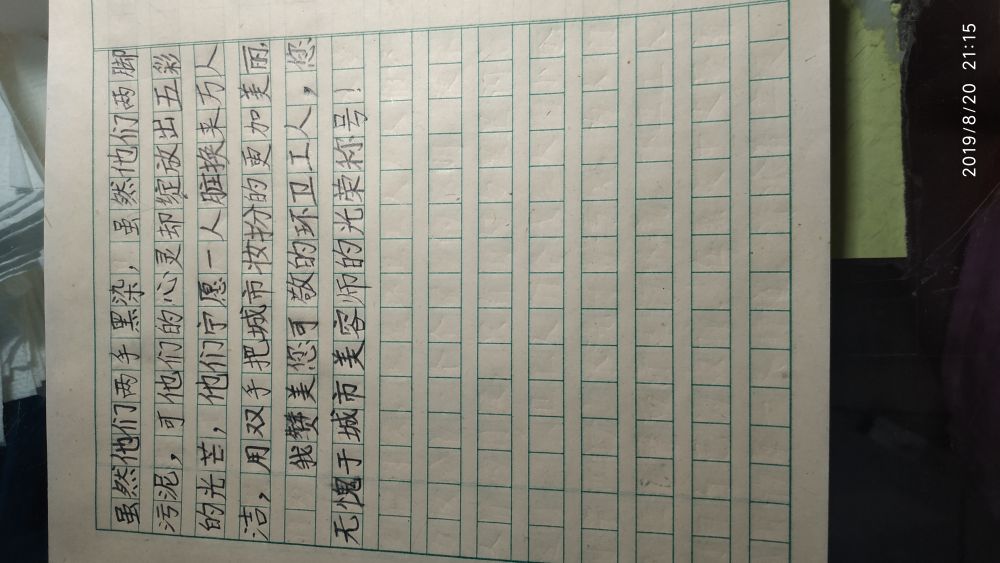 虽然他们两手黑染，虽然他们两脚
污泥，可他们的心灵却绽放出五彩
的光芒，他们宁愿一人脏换来万人
洁，用双手把城市妆扮的更加美丽
我赞美您可敬的环卫工人，您
无愧于城市美容师的光荣称号！
2019/8/20 21:15